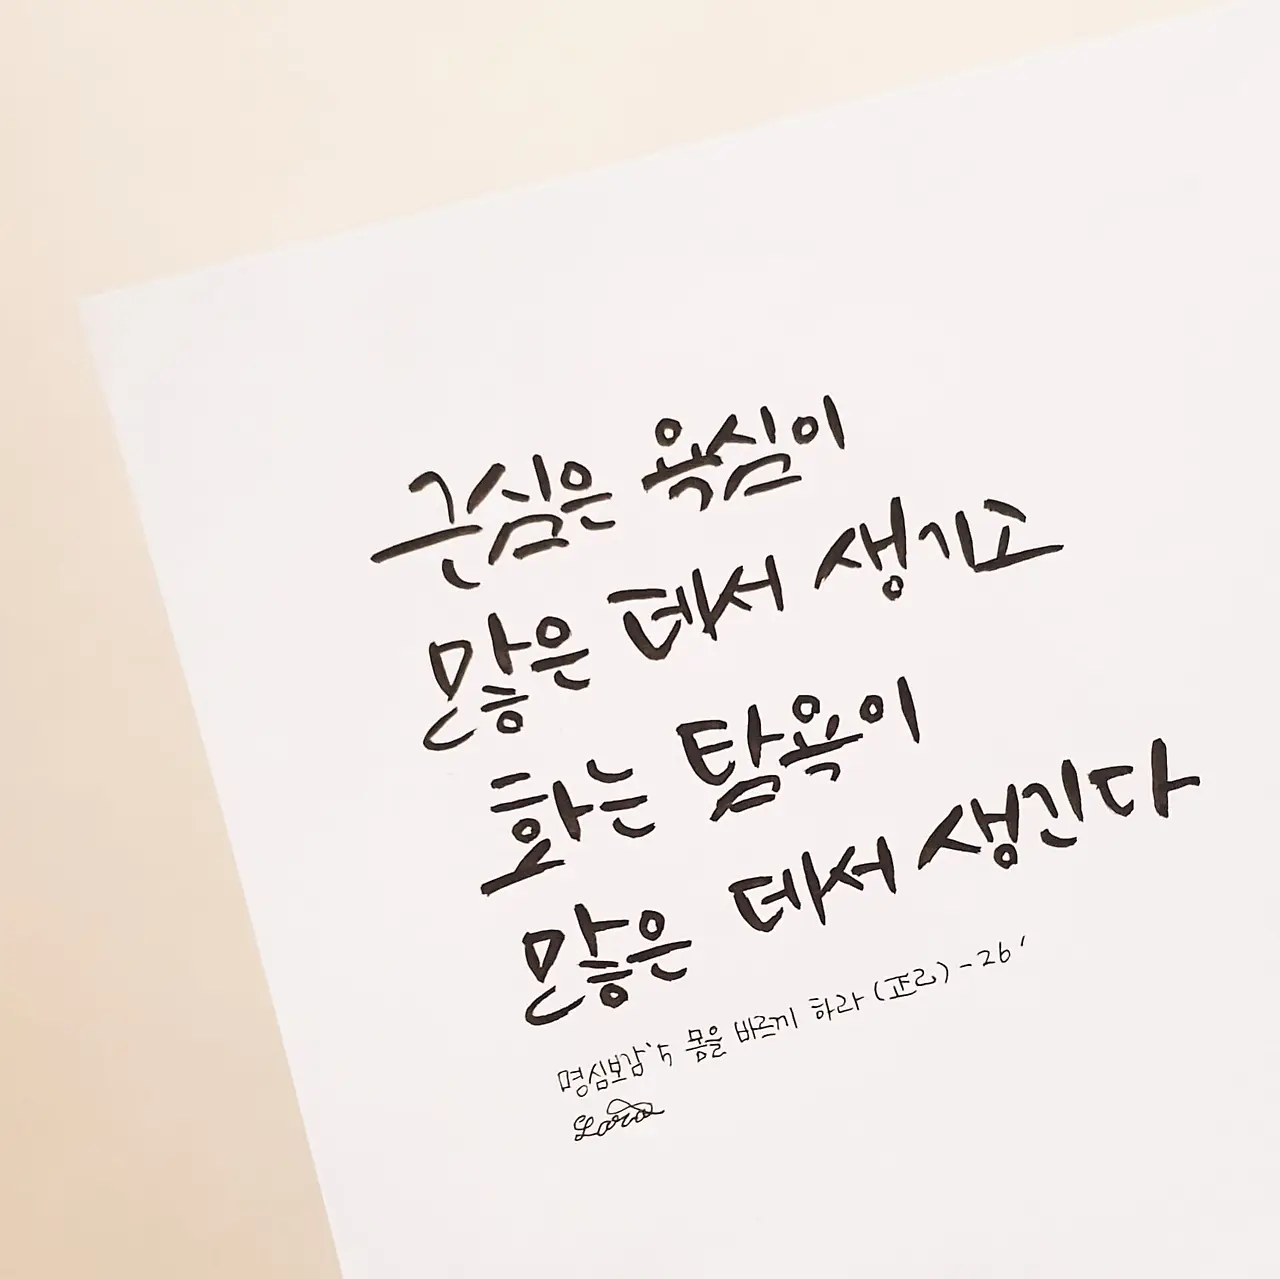 근심은 욕심이
많은 데서 생기고
화는 탐욕이
많은 데서 생긴다
명심보감'5 몸을 바르게 하라 (正己) - 26'
Lara